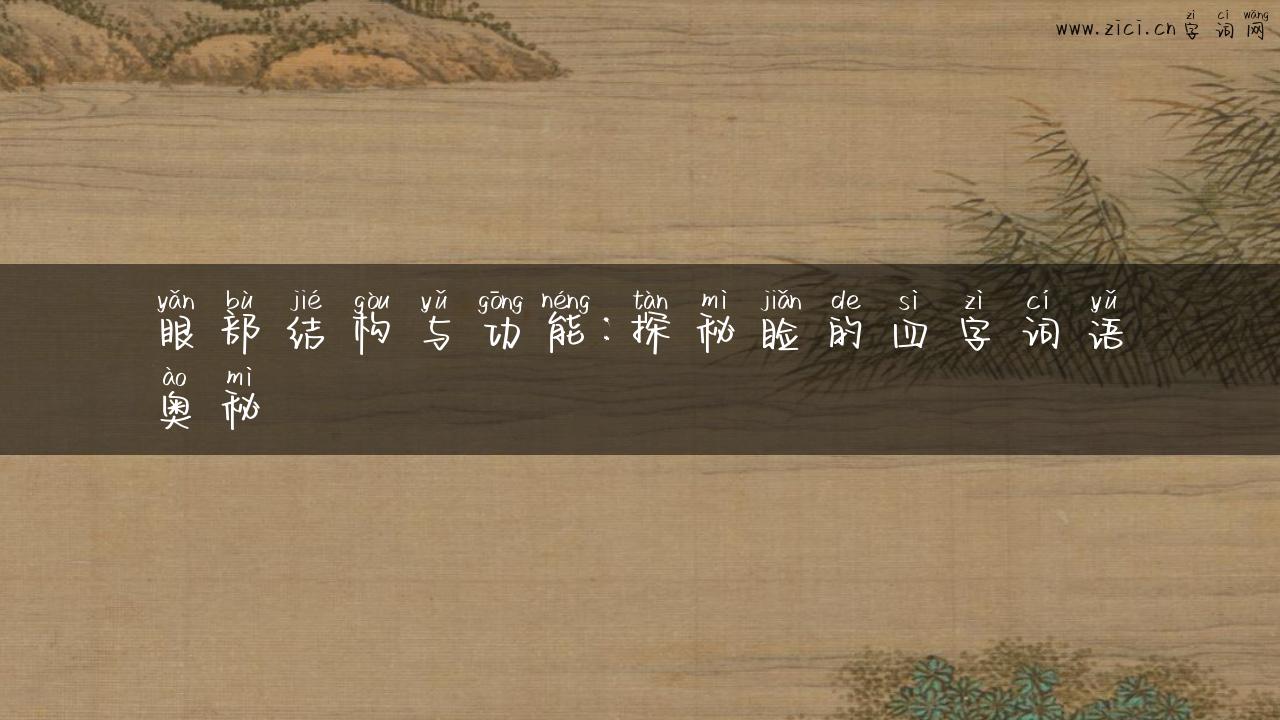 zì cí wǎng
www.zici.cn字词网
yǎn bù jié gòu yǔ gōng néng tàn mì jiǎn de sì zì cí yǔ
眼部结构与功能:探秘睑的四字词语
ào mì
奥秘